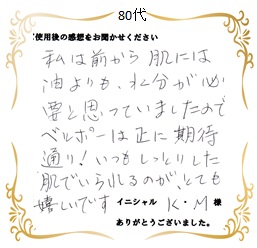 80代
使用後の感想をお聞かせください
私は前から肌には
油よりも、水分が必
要と思っていましたので
ベルポーは正に期待
通り！いつもしっとりした
肌でいられるのが、とても
嬉しいです イニシャル K・M 様
ありがとうございました。